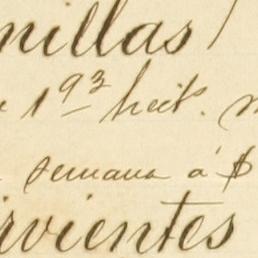 nillas
1 93 hect.
semana á $
rvientes